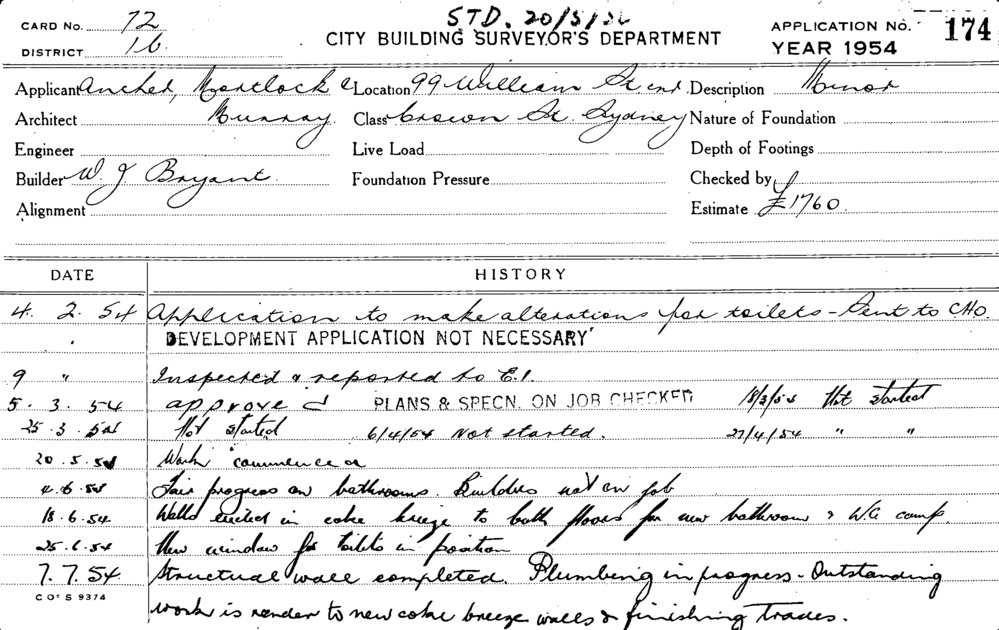 CARD No. 72
STD. 20/5/54
APPLICATION No. 174
DISTRICT 16
CITY BUILDING SURVEYOR'S DEPARTMENT
YEAR 1954
Applicant Ancher, Mortlock & Location 99 William St cnr. Description Minor
Architect Murray Class Crown St. Sydney Nature of Foundation
Engineer Live Load Depth of Footings
Builder W. J. Bryant. Foundation Pressure Checked by
Alignment Estimate £1760.
DATE HISTORY
4. 2. 54 Application to make alterations for toilets - Sent to CHO.
DEVELOPMENT APPLICATION NOT NECESSARY
9 " Inspected & reported to E.I.
5. 3. 54 approved PLANS & SPECN. ON JOB CHECKED 18/3/54 Not started
25. 3. 54 Not started 6/4/54 Not started. 27/4/54 " "
20. 5. 54 Work commenced
4. 6. 54 Fair progress on bathrooms. Builders not on job
18. 6. 54 Walls erected in coke breeze to both floors for new bathroom & W.C. comp.
25. 6. 54 New window for toilets in position
7. 7. 54 Structural wall completed. Plumbing in progress - Outstanding
C OF S 9374
work is render to new coke breeze walls & finishing trades.